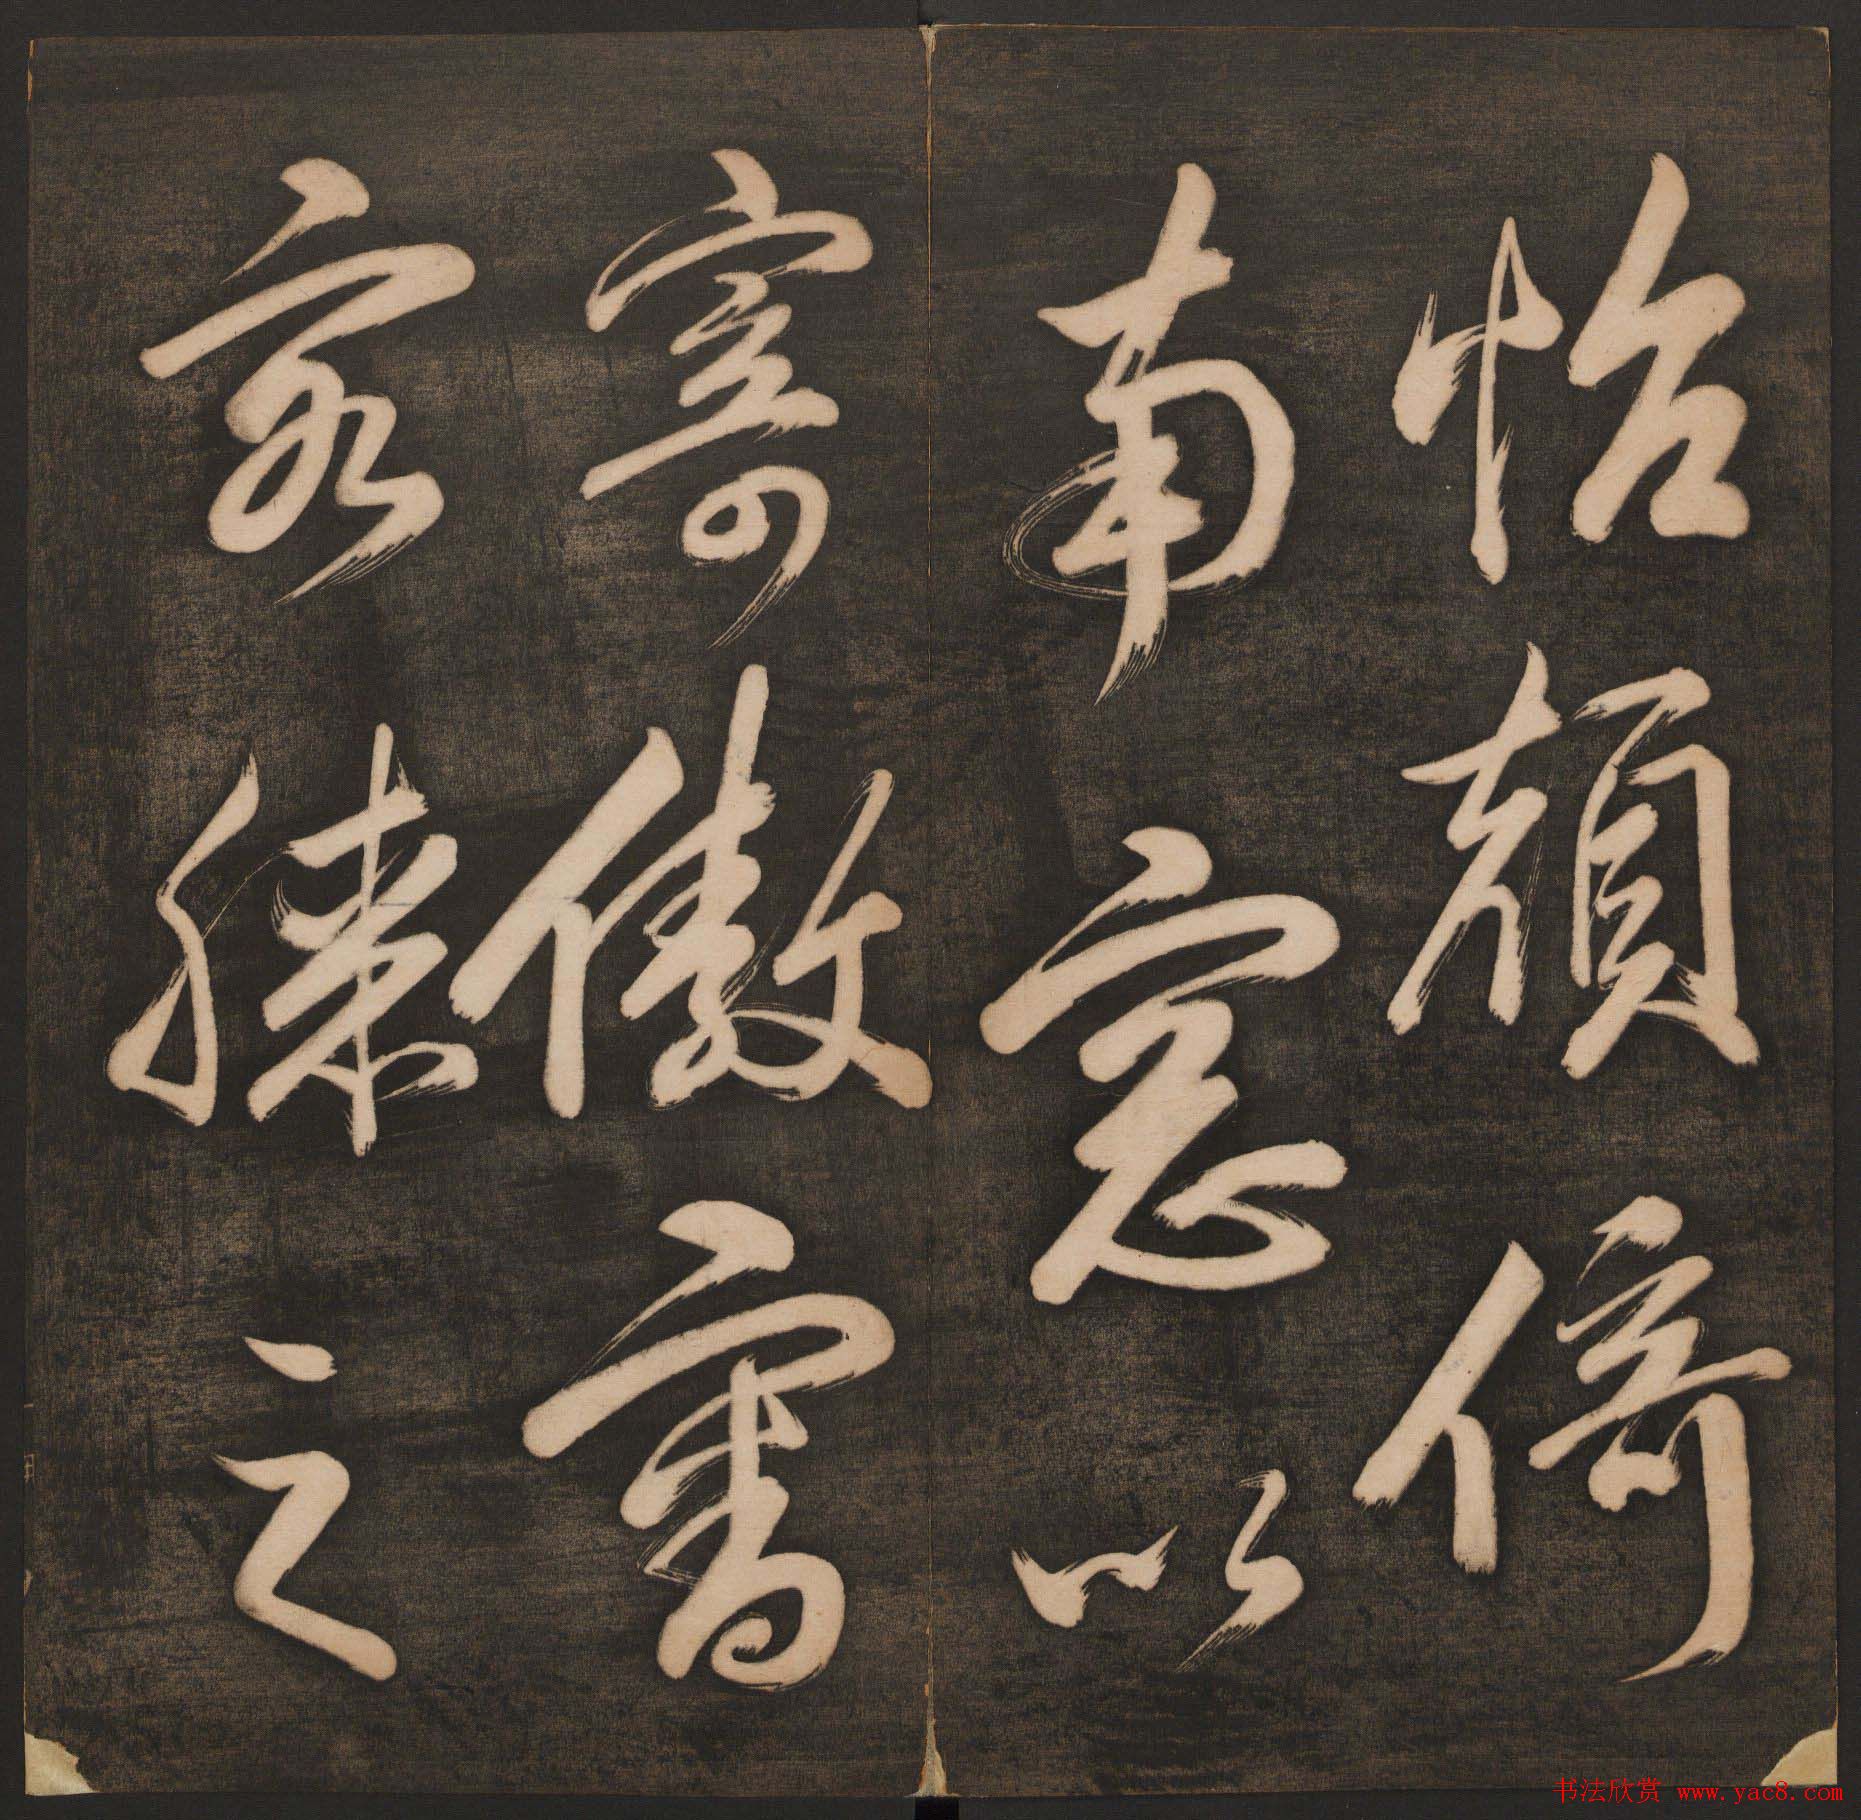 怡顔倚
南窓以
寄傲審
容膝之
书法欣赏 www.yac8.com